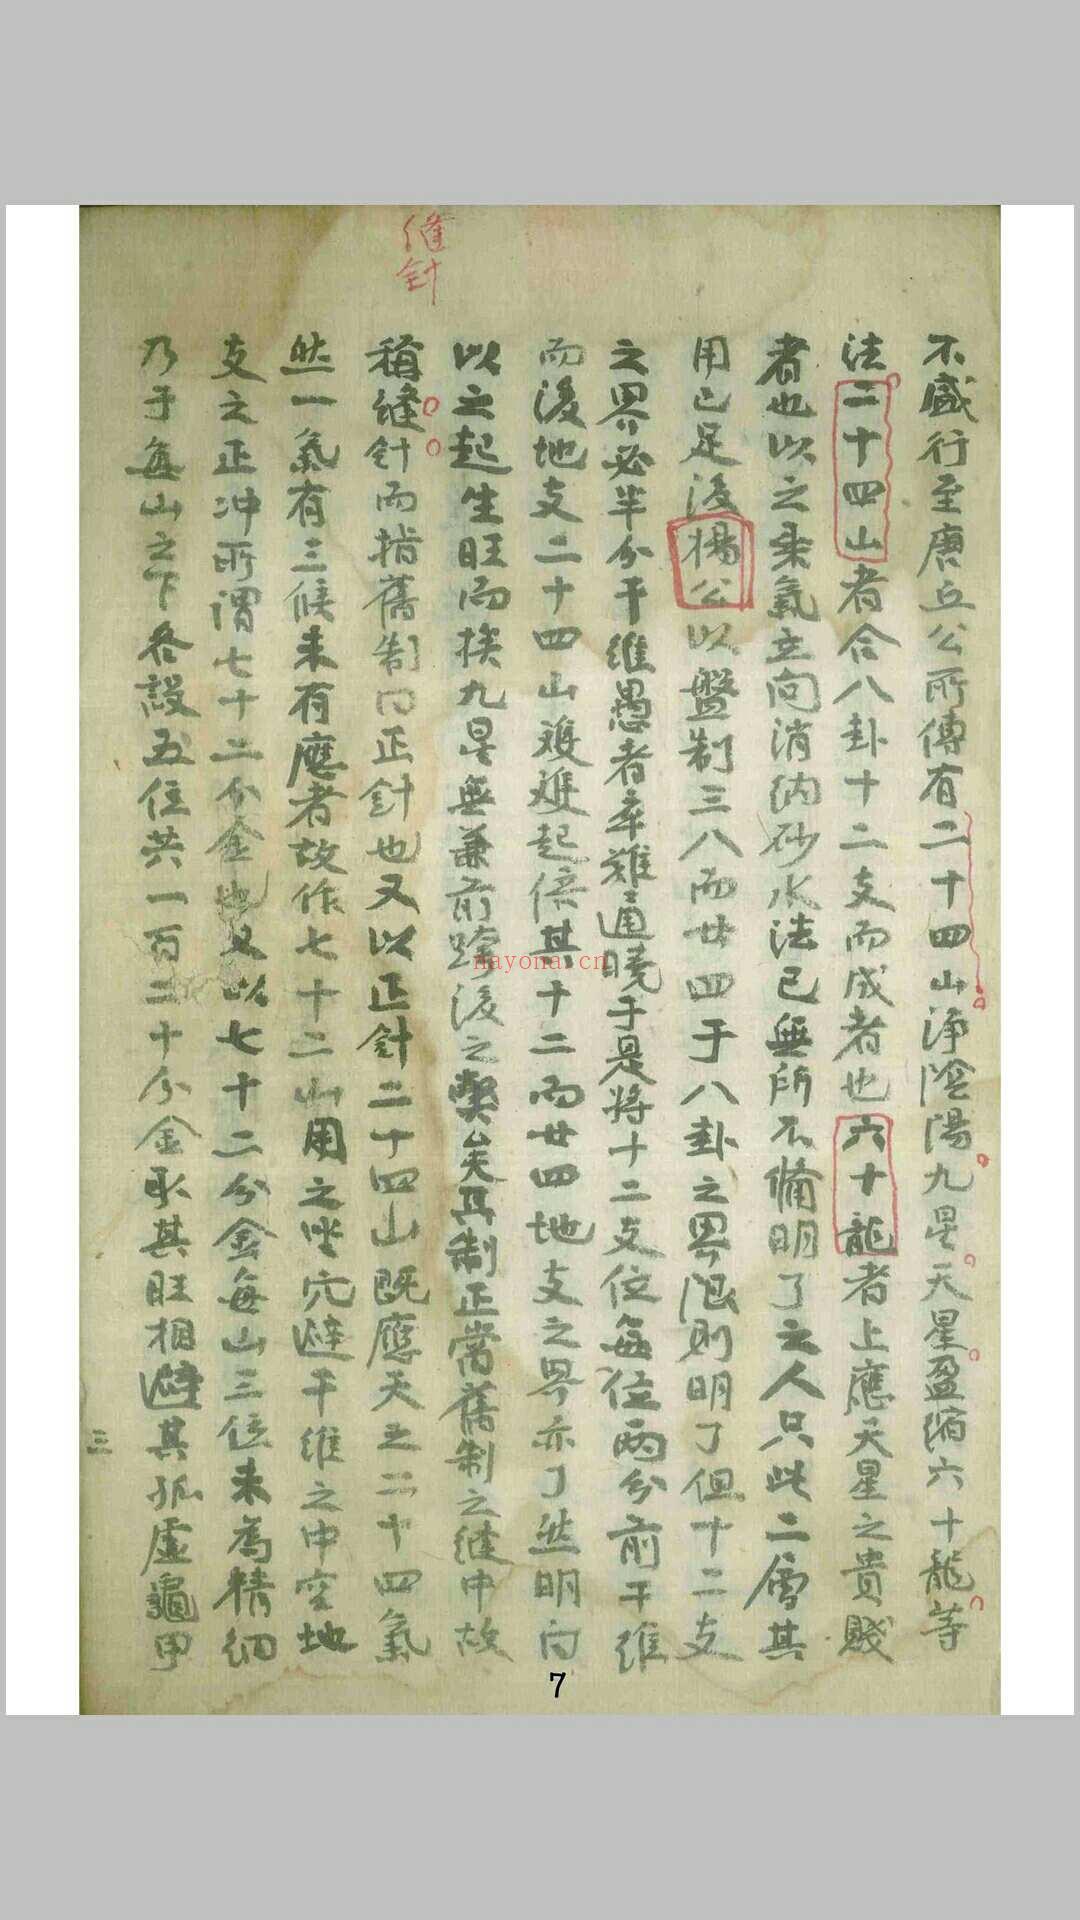 縫針
不盛行至唐丘公所傳有二十四山淨陰陽九星天星盈縮六十龍等
法二十四山者合八卦十二支而成者也六十龍者上應天星之貴賤
者也以之乘氣立向消納砂水法已無所不備明了之人只此二層其
用已足後楊公以盤制三八而廿四于八卦之界限則明了但十二支
之界必半分干維愚者卒難通曉于是將十二支位每位兩分前干維
而後地支二十四山雙雙起倍其十二而廿四地支之界亦了然明白
以之起生旺而挨九星無兼前跨後之弊矣其制正當舊制之縫中故
稱縫針而指舊制曰正針也又以正針二十四山既應天之二十四氣
然一氣有三候未有應者故作七十二山用之坐穴避干維之中空地
支之正冲所謂七十二分金也又以七十二分金每山三位未為精細
乃于每山之下各設五位共一百二十分金取其旺相避其孤虛龜甲
三
nayona.cn
7